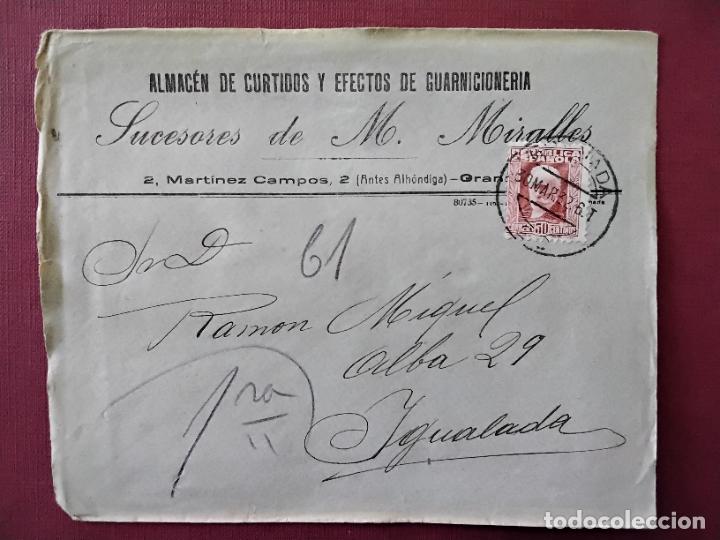 ALMACÉN DE CURTIDOS Y EFECTOS DE GUARNICIONERIA
Sucesores de M. Miralles
2, Martínez Campos, 2 (Antes Alhóndiga)—Gran
80735—
REPUBLICA
ESPAÑOLA
30 CENTIMOS
30 MAR 32.6.T
Sr D
61
Ramon Miguel
Alba 29
1ra
Igualada
todocoleccion
todocoleccion.net